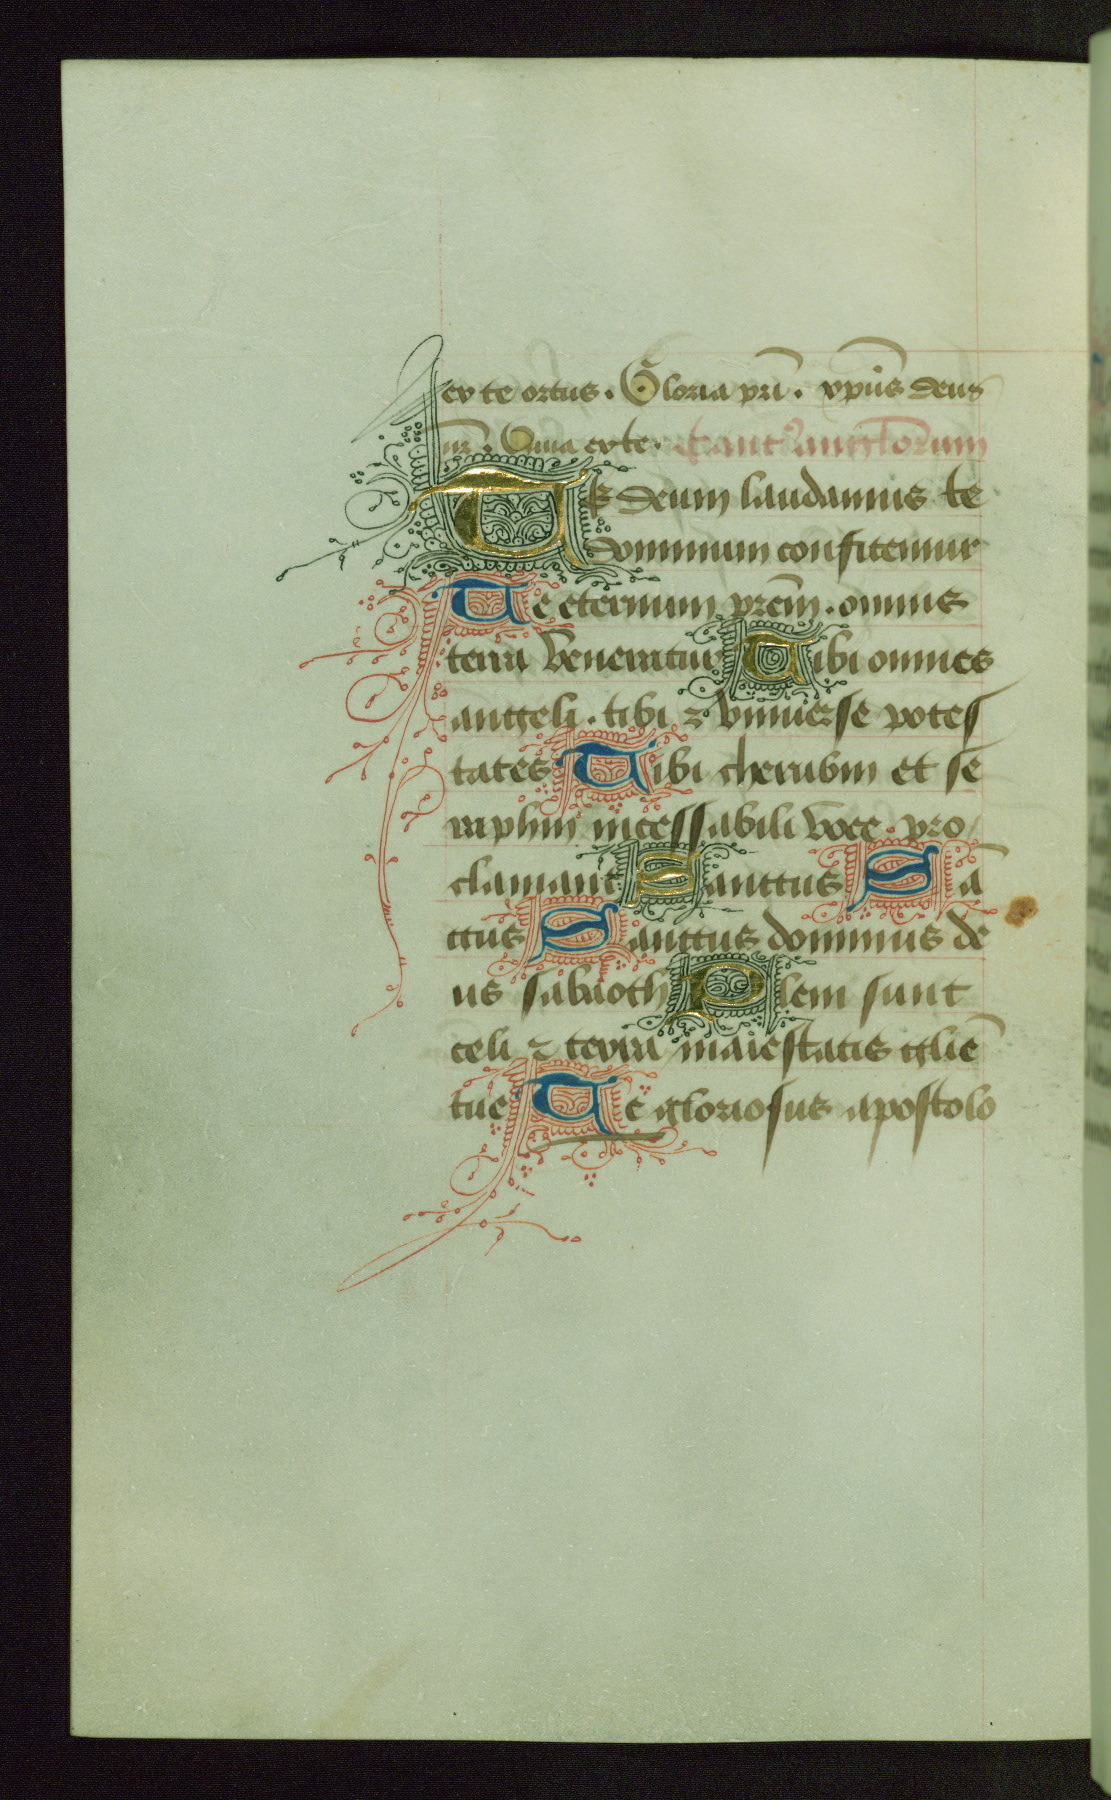 ex te ortus. Gloria pri. xpūs deus
nr. Quia ex te. Cant9 angelorum
TE deum laudamus te
dominum confitemur
Te eternum prem. omnis
terra veneratur Tibi omnes
angeli. tibi ꝛ vniuerse potes
tates Tibi cherubin et se
raphin incessabili voce pro
clamant Sanctus Sā
ctus Sanctus dominus de
us sabaoth Pleni sunt
celi ꝛ terra maiestatis glīe
tue Te gloriosus apostolo